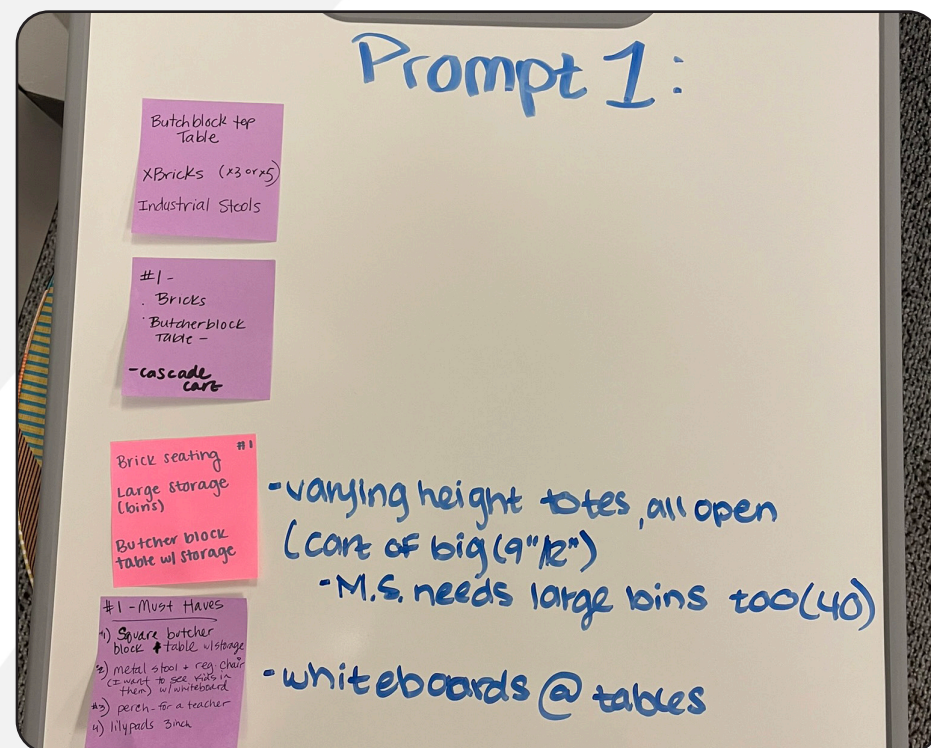 Prompt 1:
Butchblock top
Table
XBricks (x3 or x5)
Industrial Stools
#1 -
. Bricks
· Butcherblock
Table -
- cascade
cart
#1
Brick seating
Large Storage
(bins)
Butcher block
table w/ storage
- varying height totes, all open
(cart of big (9"/12")
- M.S. needs large bins too (40)
#1 - Must Haves
#1) Square butcher
block table w/storage
#2) metal stool + reg. chair
(I want to see kids in
them) w/ whiteboard
#3) perch - for a teacher
4) lilypads 3inch
- whiteboards @ tables